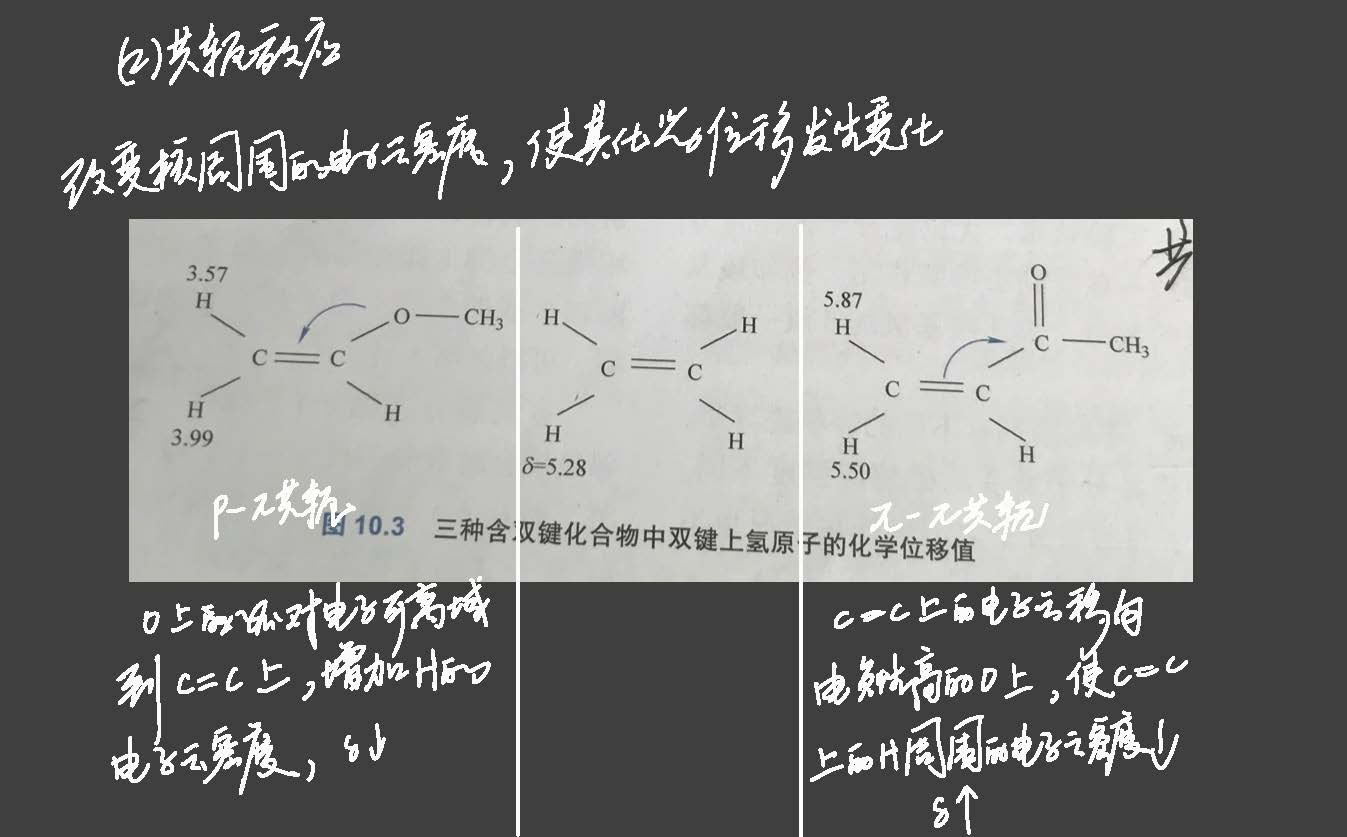 (2)共轭效应
改变核周围的电子云密度，使其化学位移发生变化
共
3.57
H
O—CH₃
C=C
H
H
3.99
H
H
C=C
H
H
δ=5.28
O
5.87
H
C—CH₃
C=C
H
H
5.50
p-π共轭
π-π共轭
图 10.3 三种含双键化合物中双键上氢原子的化学位移值
O上的孤对电子可离域
到C=C上，增加H的
电子云密度，δ↓
C=C上的电子云移向
电负性高的O上，使C=C
上的H周围的电子云密度↓
δ↑